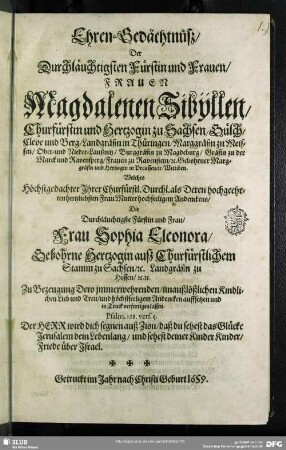 Ehren-Gedächtnüß/
Der
Durchläuchtigsten Fürstin und Frauen/
FRAUEN
Magdalenen Sibyllen/
Churfürstin und Hertzogin zu Sachsen/ Gülch/
Cleve und Berg/ Landgräfin in Thüringen/ Marggräfin zu Meis-
sen/ Ober- und Nieder-Laußnitz/ Burggräfin zu Magdeburg/ Gräfin zu der
Marck und Ravensperg/ Frauen zu Ravenstein/ ꝛc. Gebohrner Marg-
gräfin und Hertzogin in Preussen/ ꝛc. Wittiben.
Welches
Höchstgedachter Ihrer Churfürstl. Durchl. als Deren hochgeehr-
testen hertzliebsten Frau Mutter hochseeligen Andenckens/
Die
Durchläuchtigste Fürstin und Frau/
Frau Sophia Eleonora/
Gebohrne Hertzogin auß Churfürstlichem
Stamm zu Sachsen/ ꝛc. Landgräfin zu
Hessen/ ꝛc. ꝛc.
Zu Bezeugung Dero immerwehrenden/ unauflößlichen Kindli-
chen Lieb und Treu/ und höchstseeligem Andencken auffsetzen und
in Truck verfertigen lassen.
Psalm. 128. vers. 5.
Der HERR wird dich segnen auß Zion/ daß du sehest das Glücke
Jerusalem dein Lebenlang/ und sehest deiner Kinder Kinder/
Friede über Israel.
Getruckt im Jahr nach Christi Geburt 1659.
SLUB
DFG